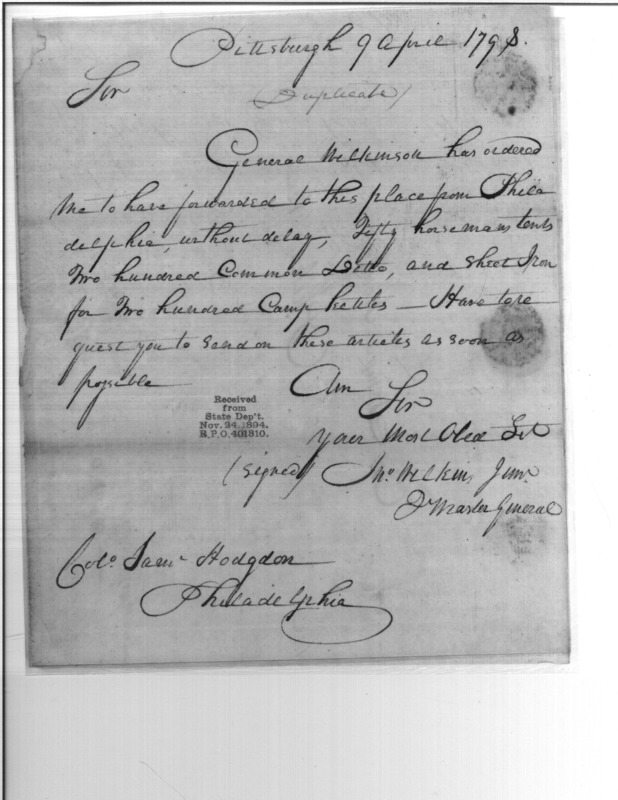 Pittsburgh 9 April 1798.
Sir
(Duplicate)
General Wilkinson has ordered
me to have forwarded to this place from Phila
delphia, without delay, Fifty horsemans tents
Two hundred Common Ditto, and Sheet Iron
for Two hundred Camp kettles — Have to re
quest you to send on these articles as soon as
possible
Am
Sir
your Most Obed Sert
(Signed) Jno Wilkins Junr
Qr Master General
Received
from
State Dep't.
Nov. 24, 1894.
R.P.O. 401810.
Colo. Saml Hodgdon
Philadelphia